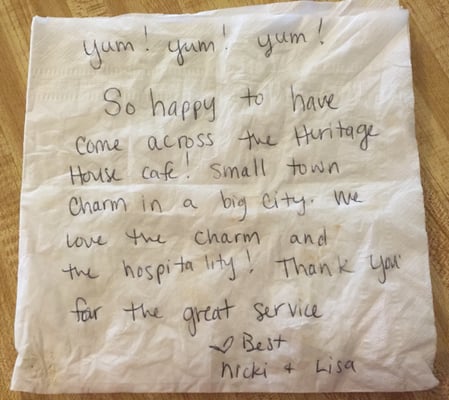 Yum! Yum! Yum!
So happy to have
come across the Heritage
House cafe! Small town
charm in a big city. We
love the charm and
the hospitality! Thank you
for the great service
♡ Best
Nicki + Lisa